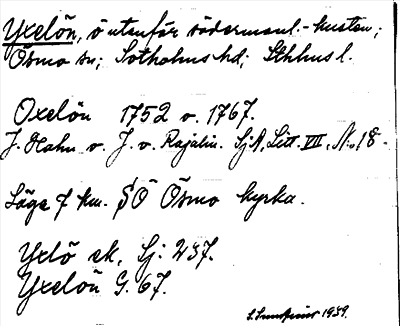 Yxelön, ö utanför södermanl.-kusten;
Ösmo sn; Sotholms hd; Sthlms l.
Oxelön 1752 v. 1767.
J. Hahn v. J. v. Rajalin. SjA, Litt. VII, No 18.
Läge 7 km. SÖ Ösmo kyrka.
Yxlö ek, Sj: 237.
Yxelön G. 67.
1939.